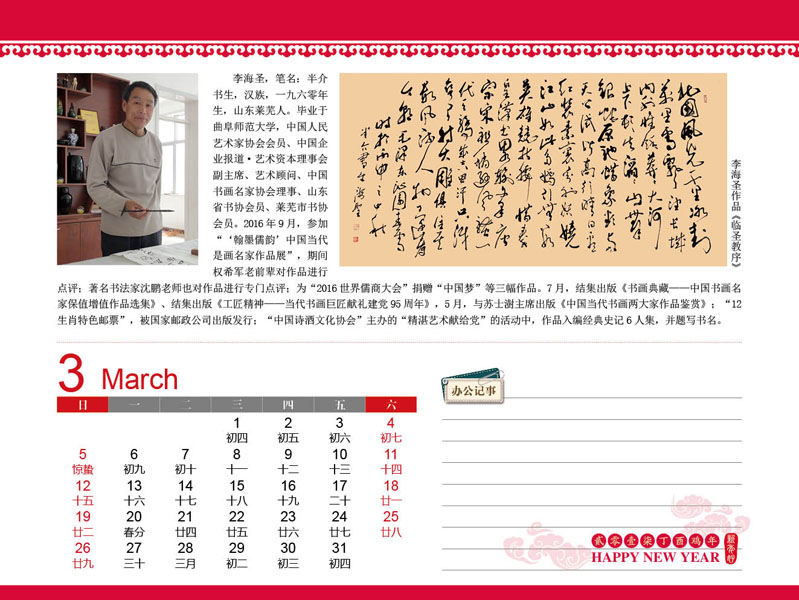 李海圣，笔名：半介
书生，汉族，一九六零年
生，山东莱芜人。毕业于
曲阜师范大学，中国人民
艺术家协会会员、中国企
业报道·艺术资本理事会
副主席、艺术顾问、中国
书画名家协会理事、山东
省书协会员、莱芜市书协
会员。2016年9月，参加
“‘翰墨儒韵’中国当代
是画名家作品展”，期间
权希军老前辈对作品进行
点评；著名书法家沈鹏老师也对作品进行专门点评；为“2016世界儒商大会”捐赠“中国梦”等三幅作品。7月，结集出版《书画典藏——中国书画名
家保值增值作品选集》、结集出版《工匠精神——当代书画巨匠献礼建党95周年》，5月，与苏士澍主席出版《中国当代书画两大家作品鉴赏》；“12
生肖特色邮票”，被国家邮政公司出版发行；“中国诗酒文化协会”主办的“精湛艺术献给党”的活动中，作品入编经典史记6人集，并题写书名。
北国风光千里冰封
万里雪飘望长城
内外惟余莽莽大河
上下顿失滔滔山舞
李海圣作品《临圣教序》
3 March
日 一 二 三 四 五 六
1 2 3 4
初四 初五 初六 初七
5 6 7 8 9 10 11
惊蛰 初九 初十 十一 十二 十三 十四
12 13 14 15 16 17 18
十五 十六 十七 十八 十九 二十 廿一
19 20 21 22 23 24 25
廿二 春分 廿四 廿五 廿六 廿七 廿八
26 27 28 29 30 31
廿九 三十 三月 初二 初三 初四
办公记事
贰零壹柒丁酉鸡年
HAPPY NEW YEAR